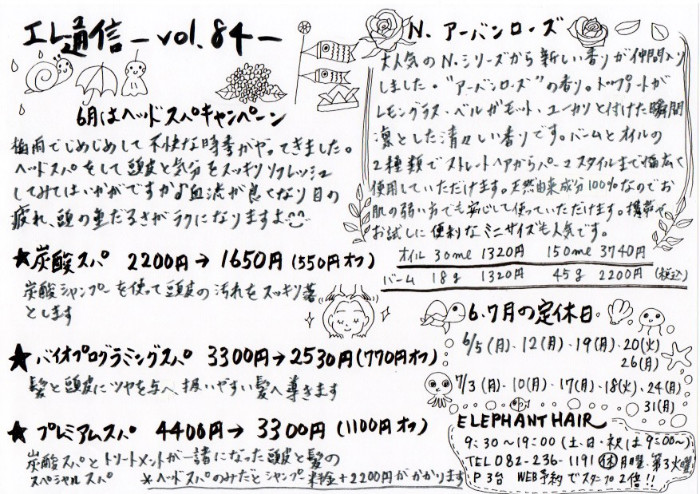 エレ通信 -vol.84-
6月はヘッドスパキャンペーン
梅雨でじめじめして不快な時季がやってきました。
ヘッドスパをして頭皮と気分をスッキリリフレッシュ
してみてはいかがですか♪血流が良くなり目の
疲れ、頭の重だるさがラクになりますよ
★炭酸スパ 2200円→1650円(550円オフ)
炭酸シャンプーを使って頭皮の汚れをスッキリ落
とします
★バイオプログラミングスパ 3300円→2530円(770円オフ)
髪と頭皮にツヤを与へ、扱いやすい髪へ導きます
★プレミアムスパ 4400円→3300円(1100円オフ)
炭酸スパとトリートメントが一諸になった頭皮と髪の
スペシャルスパ
※ヘッドスパのみだとシャンプー料金+2200円がかかります
N. アーバンローズ
大人気のN.シリーズから新しい香りが仲間入り
しました。"アーバンローズ"の香り。トップノートが
レモングラス・ベルガモット・ユーカリと付けた瞬間
凛とした清々しい香りです。バームとオイルの
2種類でストレートヘアからパーマスタイルまで幅広く
使用していただけます。天然由来成分100%なのでお
肌の弱い方でも安心して使っていただけます。携帯や
お試しに便利なミニサイズも人気です。
オイル 30ml 1320円 150ml 3740円
バーム 18g 1320円 45g 2200円 (税込)
6.7月の定休日
6/5(月)・12(月)・19(月)・20(火)
26(月)
7/3(月)・10(月)・17(月)・18(火)・24(月)
31(月)
ELEPHANT HAIR
9:30〜19:00 (土・日・祝は9:00〜)
TEL 082-236-1191 ㊡月曜・第3火曜
P3台 WEB予約でスタンプ2倍!!